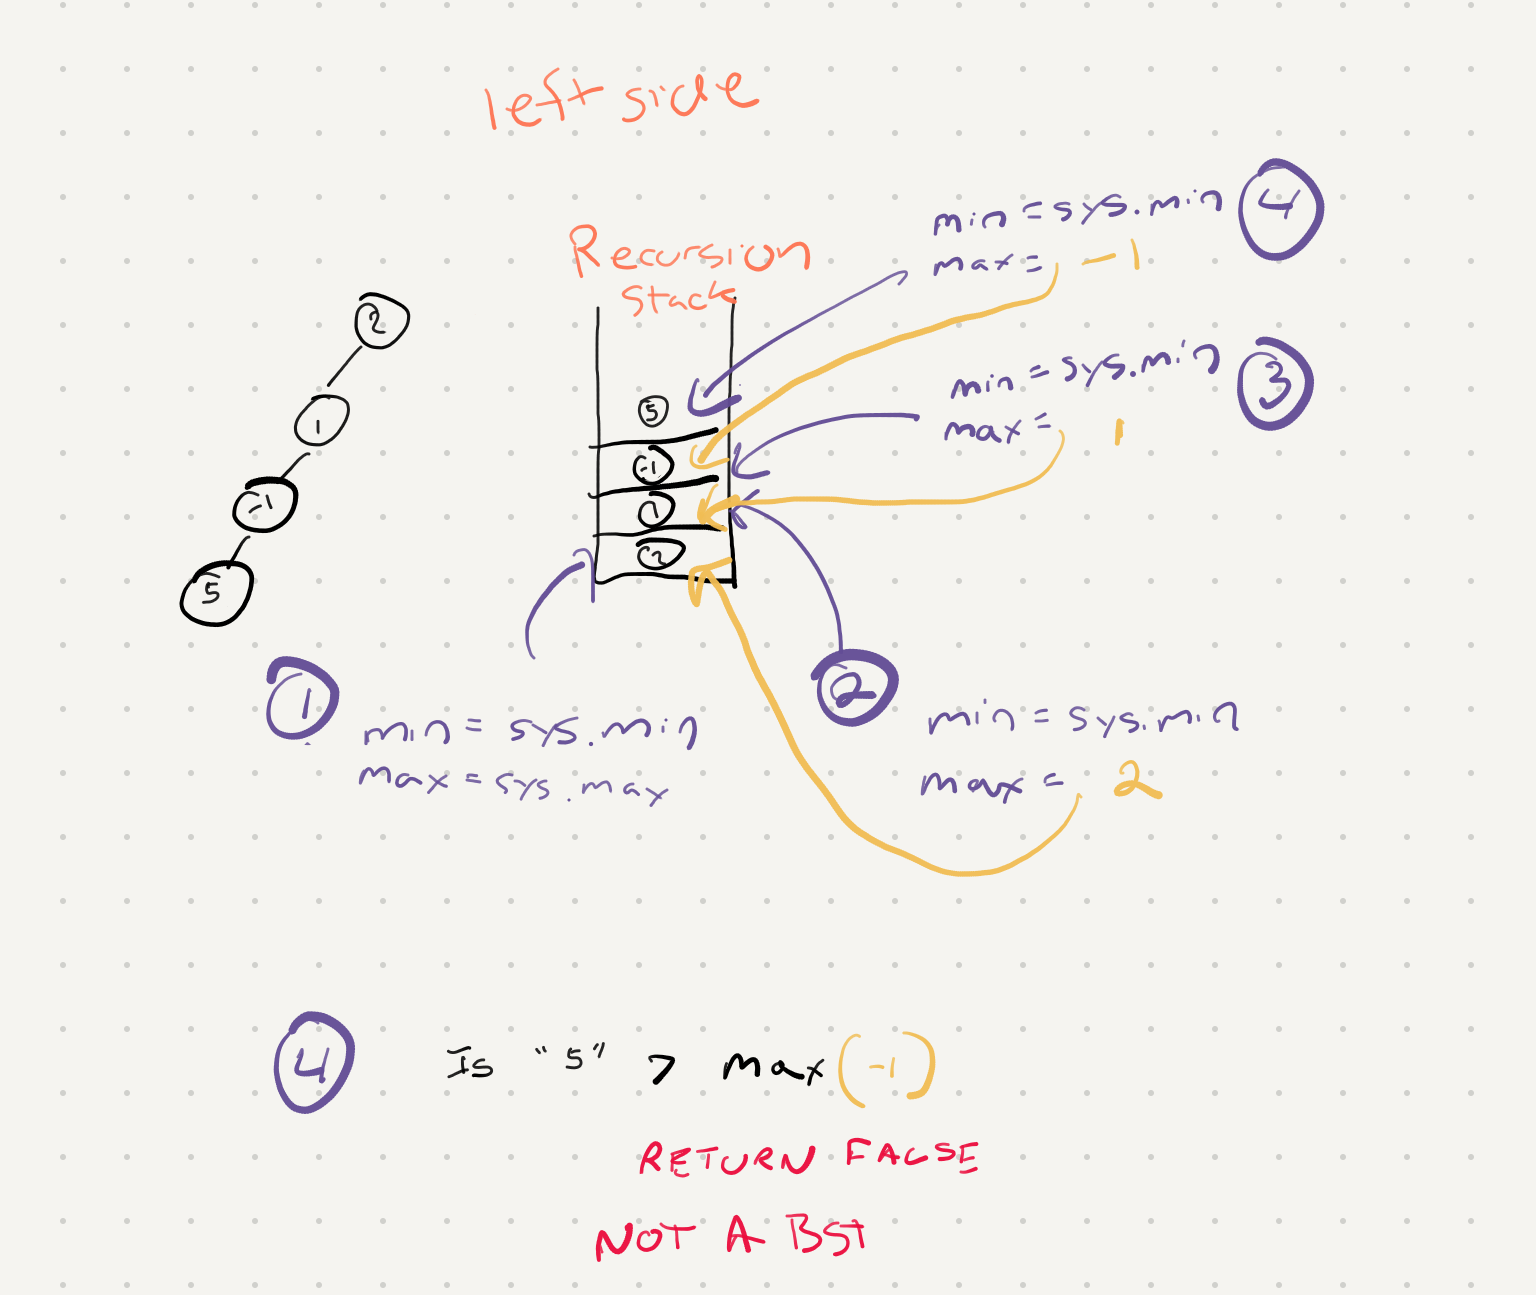 left side
Recursion
stack
min = sys.min 4
max = -1
min = sys.min 3
max = 1
2
1
-1
5
5
-1
1
2
1
min = sys.min
max = sys.max
2
min = sys.min
max = 2
4 Is "5" > max (-1)
RETURN FALSE
NOT A BST